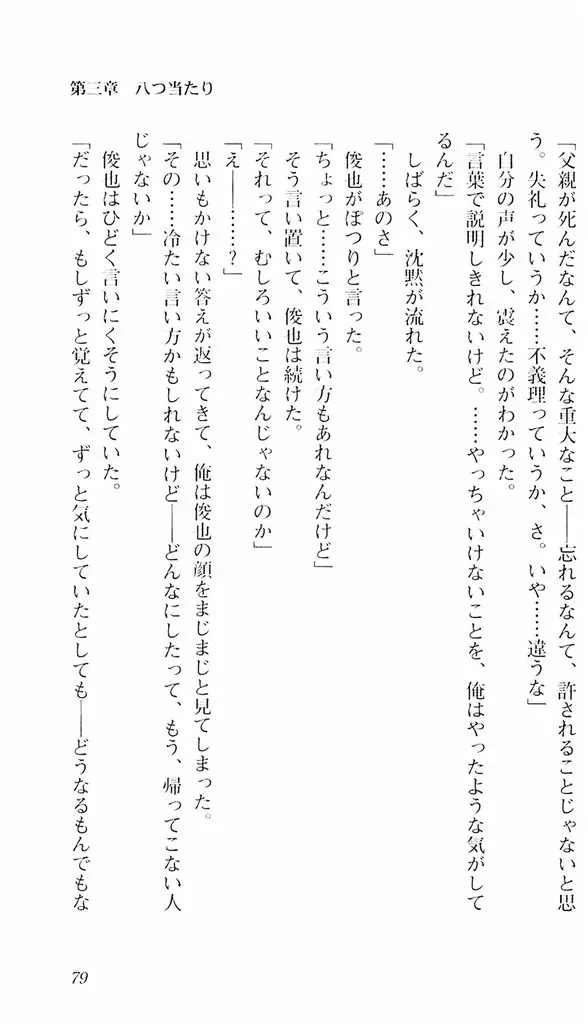 第三章　八つ当たり
「父親が死んだなんて、そんな重大なこと――忘れるなんて、許されることじゃないと思
う。失礼っていうか……不義理っていうか、さ。いや……違うな」
自分の声が少し、震えたのがわかった。
「言葉で説明しきれないけど。……やっちゃいけないことを、俺はやったような気がして
るんだ」
しばらく、沈黙が流れた。
「……あのさ」
俊也がぽつりと言った。
「ちょっと……こういう言い方もあれなんだけど」
そう言い置いて、俊也は続けた。
「それって、むしろいいことなんじゃないのか」
「え――……？」
思いもかけない答えが返ってきて、俺は俊也の顔をまじまじと見てしまった。
「その……冷たい言い方かもしれないけど――どんなにしたって、もう、帰ってこない人
じゃないか」
俊也はひどく言いにくそうにしていた。
「だったら、もしずっと覚えてて、ずっと気にしていたとしても――どうなるもんでもな
79